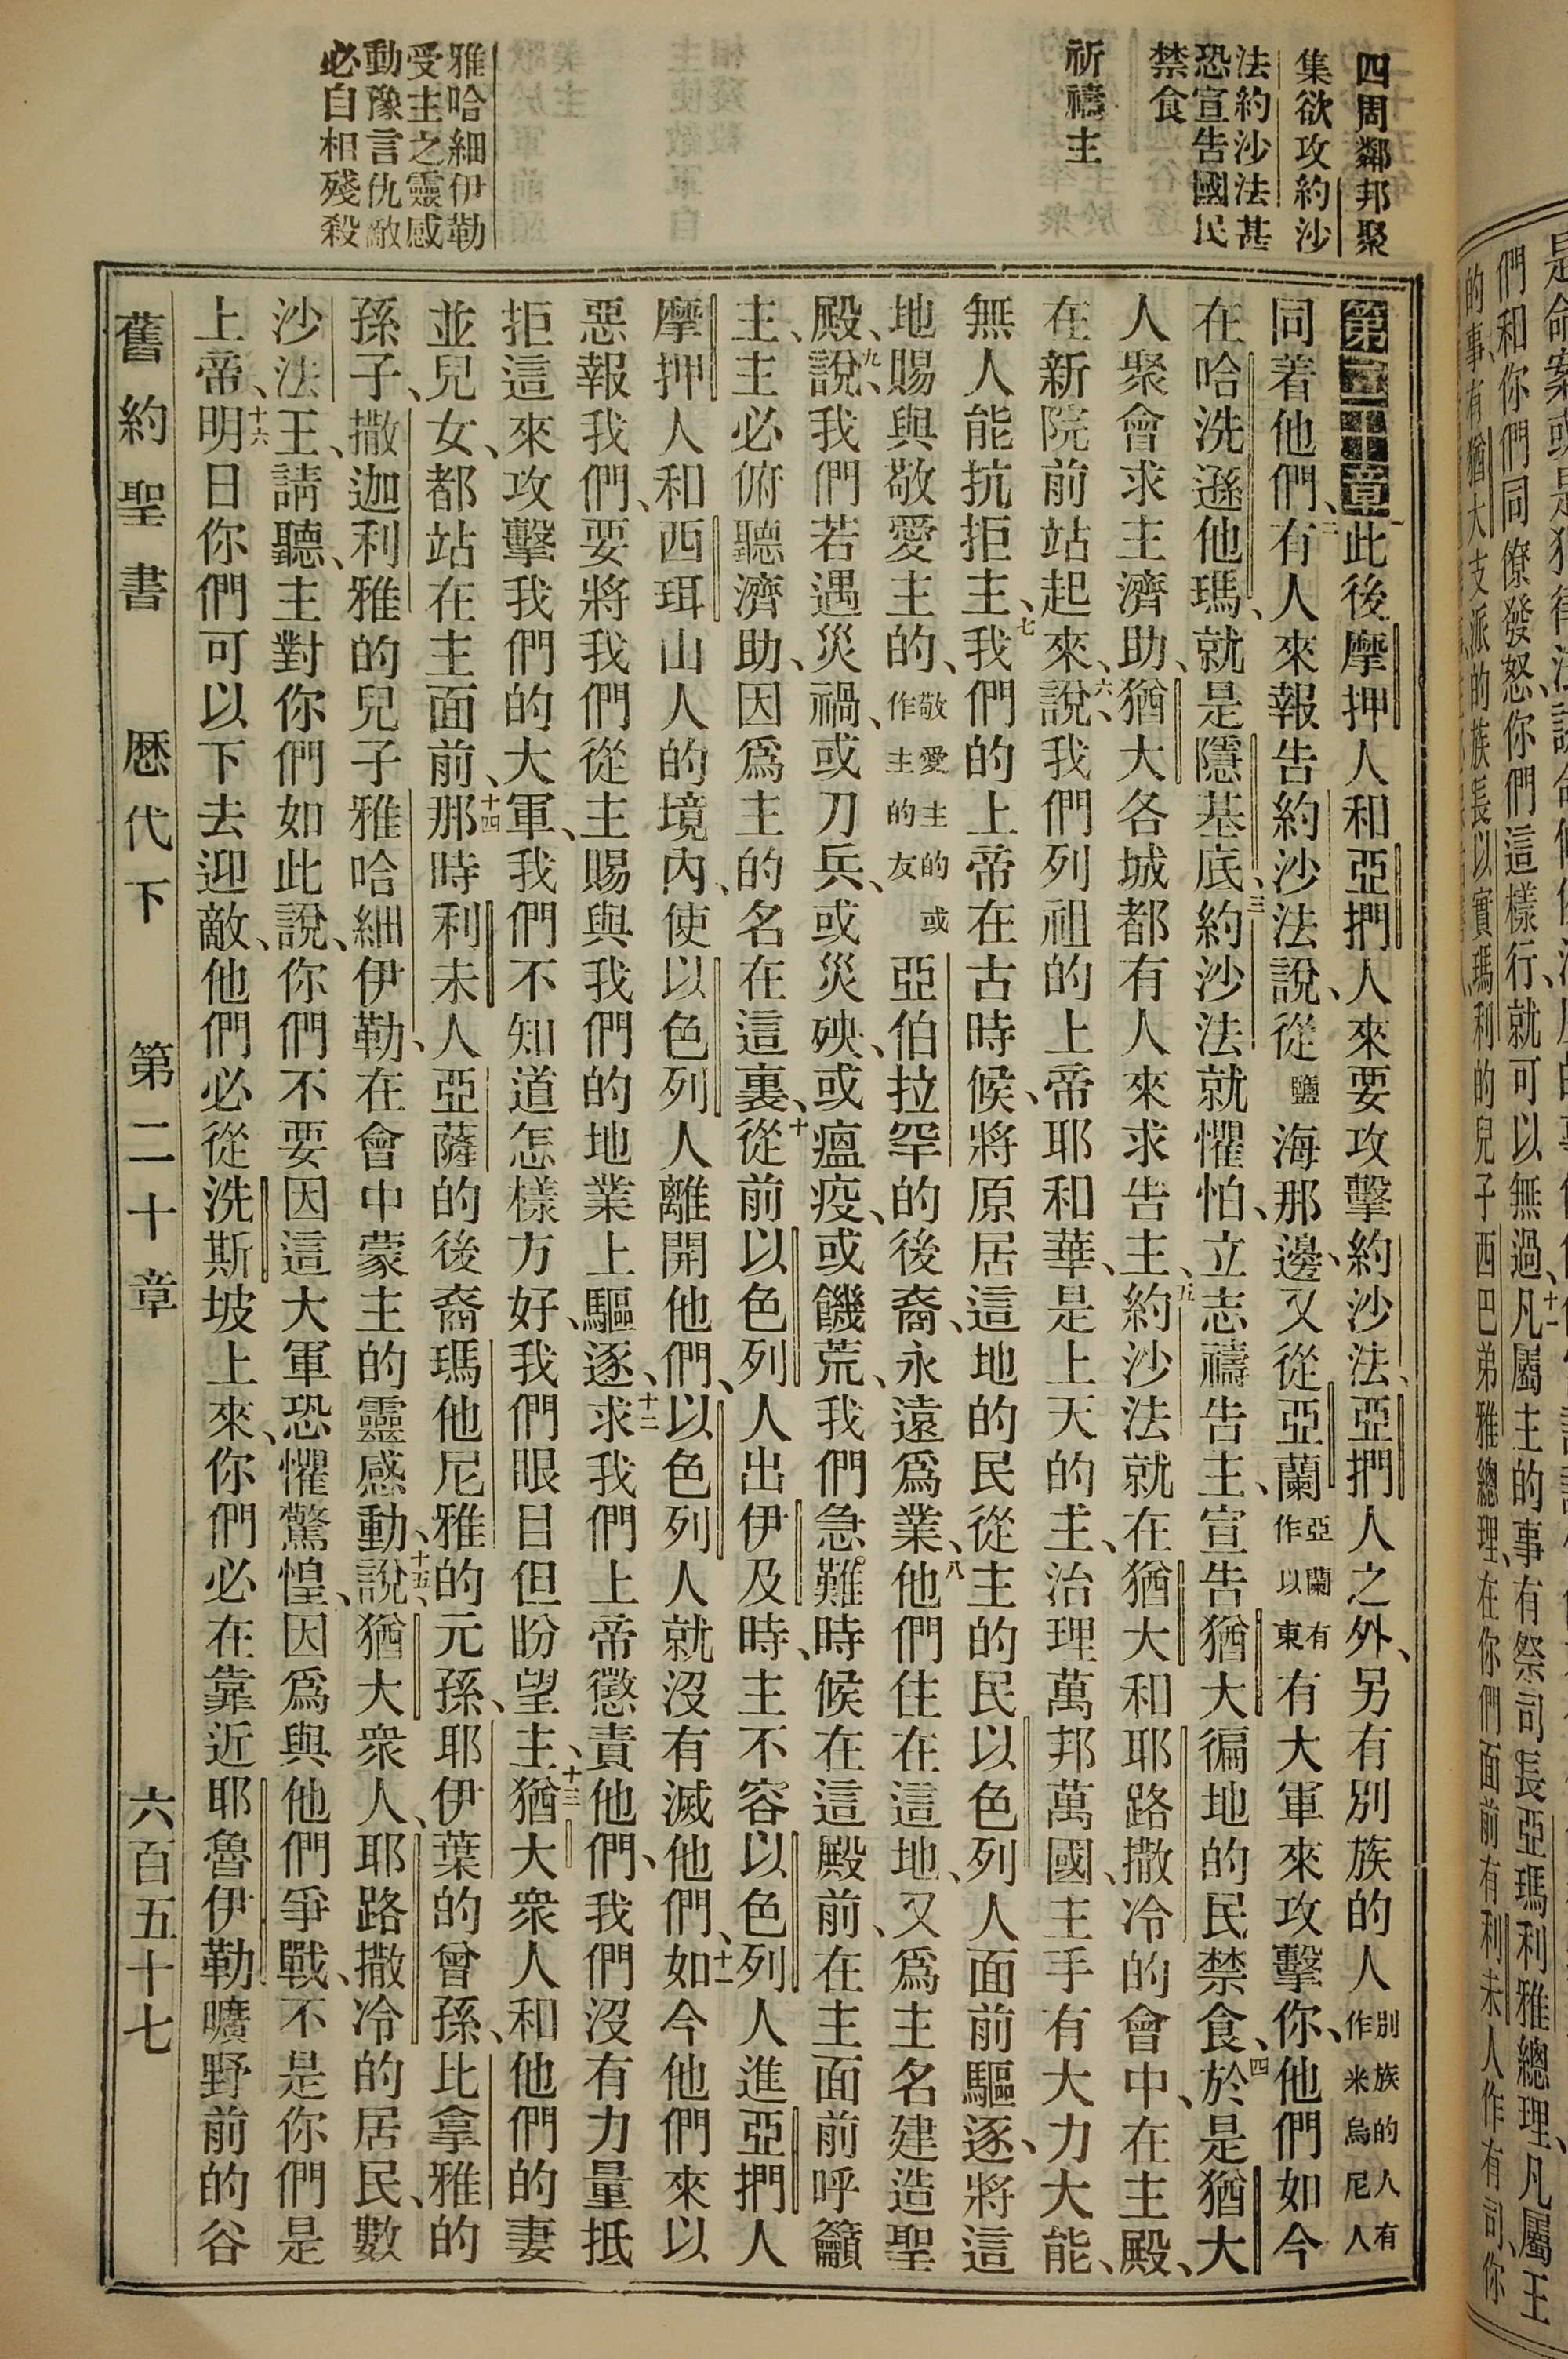 四周鄰邦聚
集欲攻約沙
法約沙法甚
恐宣告國民
禁食
祈禱主
雅哈細伊勒
受主之靈感
動豫言仇敵
必自相殘殺
第二十章一此後摩押人和亞捫人來要攻擊約沙法、亞捫人之外、另有別族的人別族的人有作米烏尼人
同着他們、二有人來報告約沙法說、從鹽海那邊、又從亞蘭亞蘭有作以東有大軍來攻擊你、他們如今
在哈洗遜他瑪、就是隱基底、三約沙法就懼怕、立志禱告主、宣告猶大徧地的民禁食、四於是猶大
人聚會求主濟助、猶大各城都有人來求告主、五約沙法就在猶大和耶路撒冷的會中、在主殿、
在新院前站起來、六說、我們列祖的上帝耶和華、是上天的主、治理萬邦萬國、主手有大力大能、
無人能抗拒主、七我們的上帝在古時候、將原居這地的民從主的民以色列人面前驅逐、將這
地賜與敬愛主的、敬愛主的或作主的友亞伯拉罕的後裔、永遠爲業、八他們住在這地、又爲主名建造聖
殿、九說、我們若遇災禍、或刀兵、或災殃、或瘟疫、或饑荒、我們急難時候在這殿前、在主面前呼籲
主、主必俯聽濟助、因爲主的名在這裏、十從前以色列人出伊及時、主不容以色列人進亞捫人
摩押人和西珥山人的境內、使以色列人離開他們、以色列人就沒有滅他們、十一如今他們來以
惡報我們、要將我們從主賜與我們的地業上驅逐、十二求我們上帝懲責他們、我們沒有力量抵
拒這來攻擊我們的大軍、我們不知道怎樣方好、我們眼目但盼望主、十三猶大衆人和他們的妻
並兒女、都站在主面前、十四那時利未人亞薩的後裔瑪他尼雅的元孫、耶伊葉的曾孫、比拿雅的
孫子、撒迦利雅的兒子雅哈細伊勒、在會中蒙主的靈感動、十五說、猶大衆人、耶路撒冷的居民、數
沙法王、請聽、主對你們如此說、你們不要因這大軍恐懼驚惶、因爲與他們爭戰、不是你們是
上帝、十六明日你們可以下去迎敵、他們必從洗斯坡上來、你們必在靠近耶魯伊勒曠野前的谷
舊約聖書 歷代下 第二十章 六百五十七